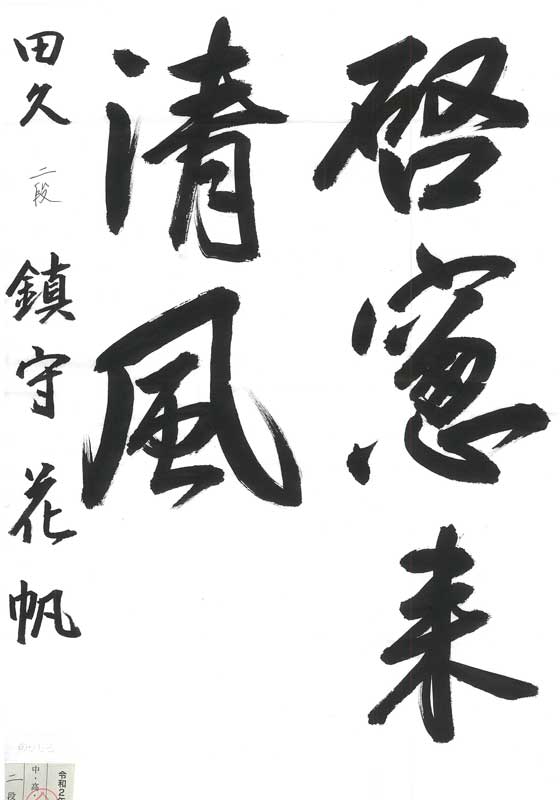 啓窓来
清風
田久 二段 鎮守花帆
令和2年
中・高
二段